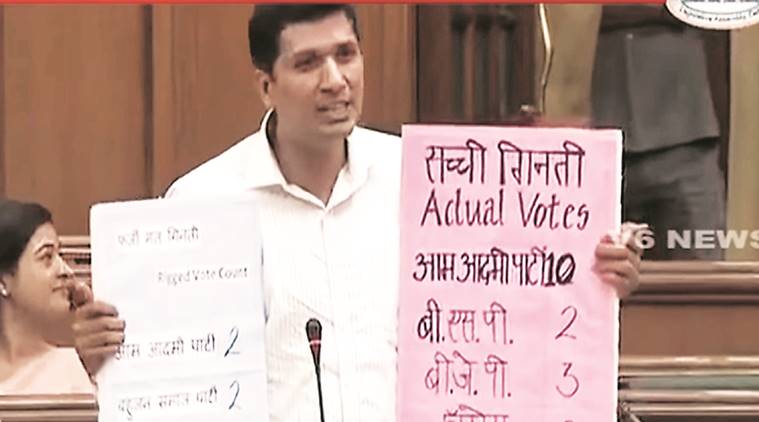 फर्जी मत गिनती
Rigged Vote Count
आम आदमी पार्टी 2
बहुजन समाज पार्टी 2
सच्ची गिनती
Actual Votes
आम आदमी पार्टी 10
बी.एस.पी. 2
बी.जे.पी. 3
V6 NEWS